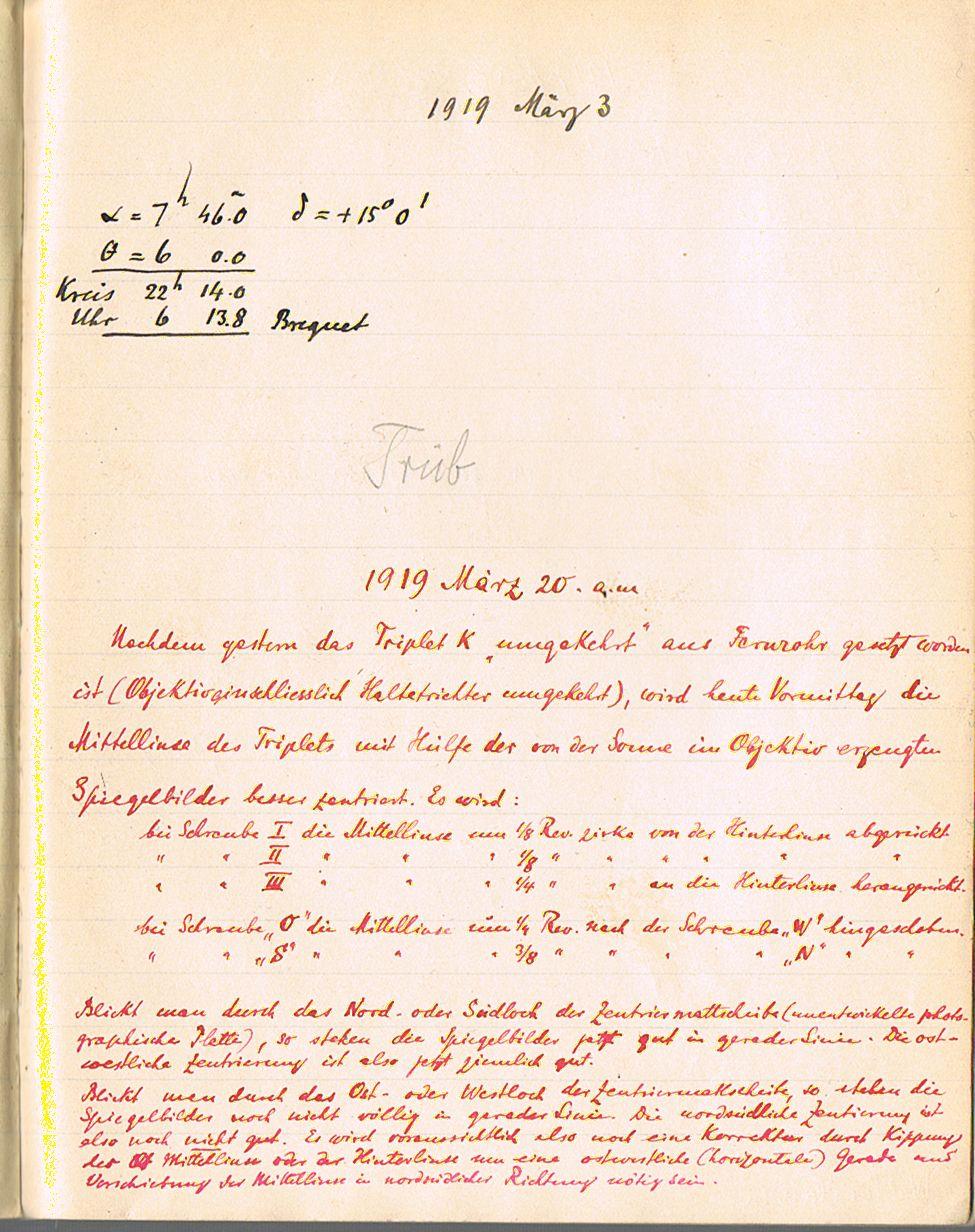 1919 März 3
α = 7ʰ 46.ᵐ0 δ = +15° 0'
θ = 6 0.0
Kreis 22ʰ 14.0
Uhr 6 13.8 Breguet
Trüb
1919 März 20. a.m
Nachdem gestern das Triplet K „umgekehrt“ ans Fernrohr gesetzt worden
ist (Objektiv einschliesslich Haltetrichter umgekehrt), wird heute Vormittag die
Mittellinse des Triplets mit Hülfe der von der Sonne im Objektiv erzeugten
Spiegelbilder besser zentriert. Es wird:
bei Schraube I die Mittellinse um 1/8 Rev. zirka von der Hinterlinse abgerückt
" " II " " " 1/8 " " " " " "
" " III " " " 1/4 " " an die Hinterlinse herangerückt.
bei Schraube „O“ die Mittellinse um 1/4 Rev. nach der Schraube „W“ hingeschoben.
" " „S“ " " " 3/8 " " " " „N“ " "
Blickt man durch das Nord- oder Südloch der Zentriermattscheibe (unentwickelte photo-
graphische Platte), so stehen die Spiegelbilder jetzt gut in gerader Linie. Die ost-
westliche Zentrierung ist also jetzt ziemlich gut.
Blickt man durch das Ost- oder Westloch der Zentriermattscheibe, so stehen die
Spiegelbilder noch nicht völlig in gerader Linie. Die nordsüdliche Zentierung ist
also noch nicht gut. Es wird voraussichtlich also noch eine Korrektur durch Kippung
der Mittellinse oder der Hinterlinse um eine ostwestliche (horizontale) Gerade und
Verschiebung der Mittellinse in nordsüdlicher Richtung nötig sein.